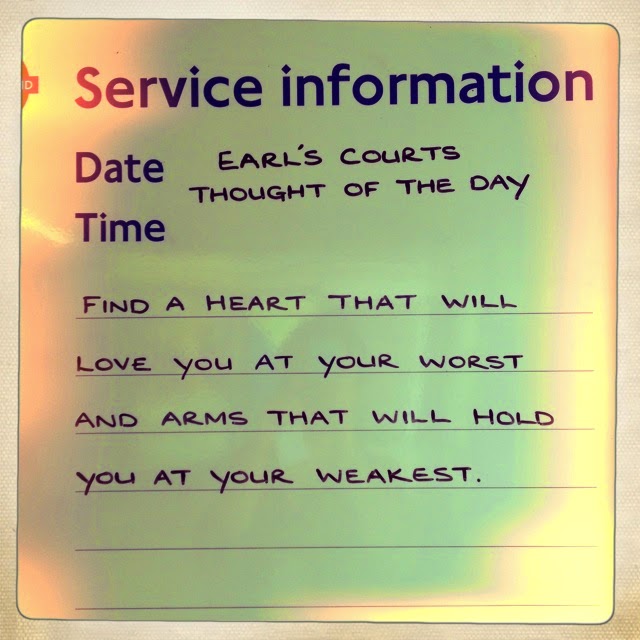 Service information
Date EARL'S COURTS
THOUGHT OF THE DAY
Time
FIND A HEART THAT WILL
LOVE YOU AT YOUR WORST
AND ARMS THAT WILL HOLD
YOU AT YOUR WEAKEST.